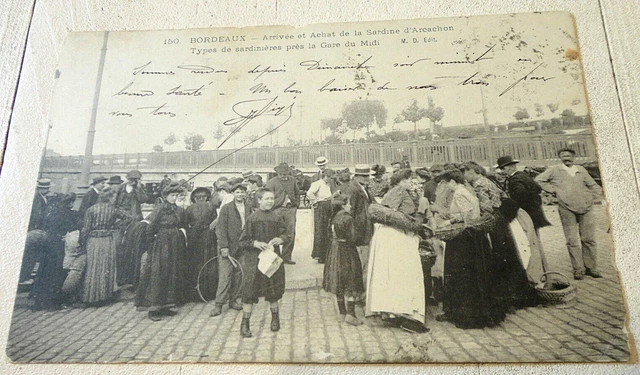 150. BORDEAUX — Arrivée et Achat de la Sardine d'Arcachon
Types de sardinières près la Gare du Midi M. D. Édit.
Sommes depuis Dimanche soir
bonne Santé - Un bon baiser de nous trois pour
vous tous.